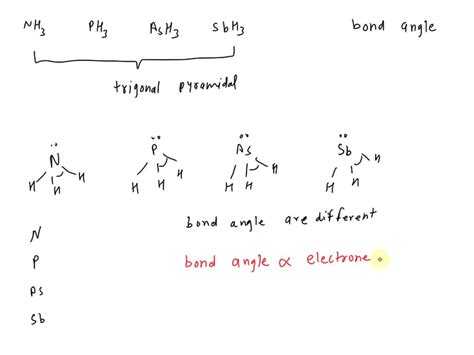 NH3 PH3 AsH3 SbH3 bond angle
trigonal pyramidal
N P As Sb
H H H H H H H H H H H H
N
bond angle are different
P
bond angle ∝ electrone
As
Sb